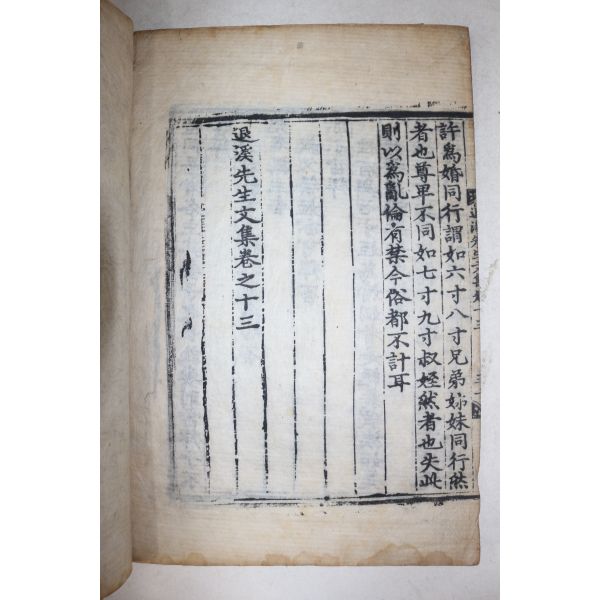 許爲婚同行謂如六寸八寸兄弟姊妹同行然
者也尊卑不同如七寸九寸叔姪然者也失此
則以爲亂倫有禁今俗都不計耳
退溪先生文集卷之十三